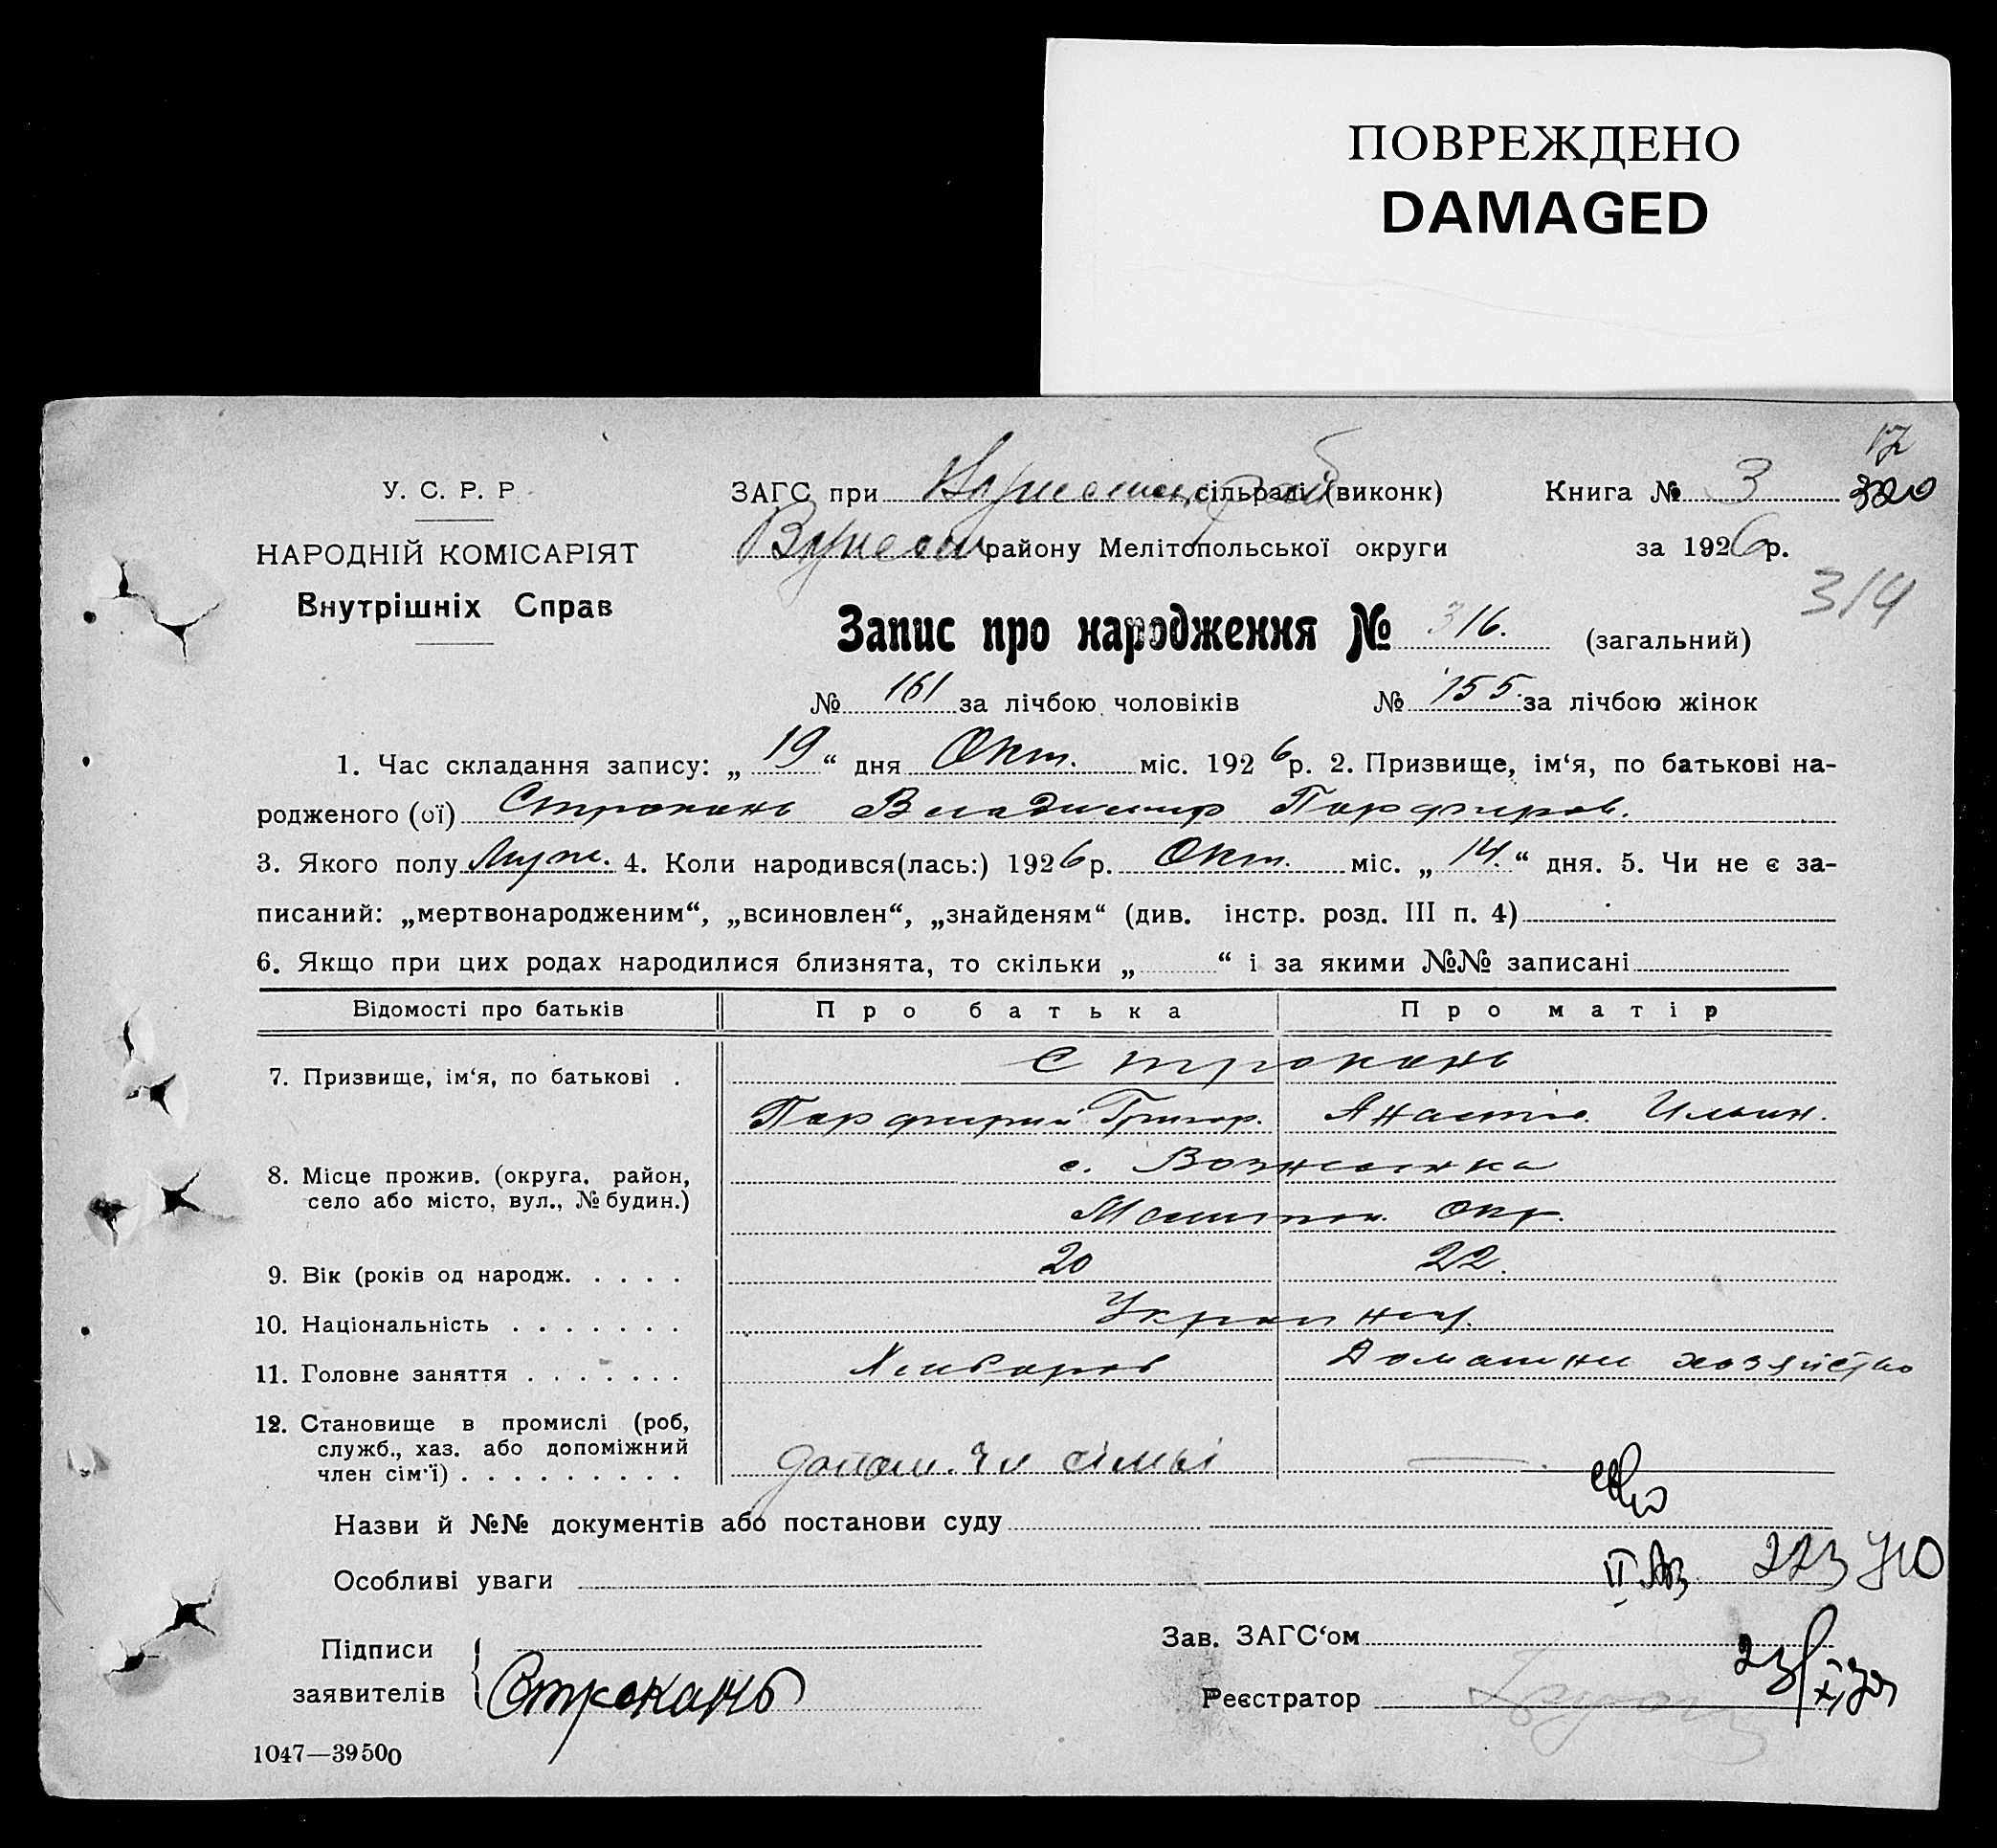 ПОВРЕЖДЕНО
DAMAGED
17
У. С. Р. Р
ЗАГС при сільраді (виконк) Книга № 3 320
НАРОДНІЙ КОМІСАРІЯТ
району Мелітопольської округи за 1926р.
Внутрішніх Справ
314
Запис про народження № 316. (загальний)
№ 161 за лічбою чоловіків № 155. за лічбою жінок
1. Час складання запису: „ 19 “ дня Окт. міс. 1926р. 2. Призвище, ім‘я, по батькові на-
родженого (ої) Строкань Владимир Парфиров.
3. Якого полу Муж. 4. Коли народився(лась:) 1926р. Окт. міс. „ 14. “ дня. 5. Чи не є за-
писаний: „мертвонародженим“, „всиновлен“, „знайденям“ (див. інстр. розд. III п. 4)
6. Якщо при цих родах народилися близнята, то скільки „ “ і за якими №№ записані
Відомості про батьків Про батька Про матір
7. Призвище, ім‘я, по батькові . Строкань
Парфирий Григор. Анастас. Ильин.
8. Місце прожив. (округа, район, с. Вознесенка
село або місто, вул., № будин.)
Мелитоп. Окр.
9. Вік (років од народж. . . . . 20 22.
10. Національність . . . . . . . Украинц.
11. Головне заняття . . . . . . . Хлебороб Домашнє хозяйство
12. Становище в промислі (роб,
служб., хаз. або допоміжний
член сім‘ї) . . . . . . . . . допом. чл сімьі —.
Назви й №№ документів або постанови суду
Особливі уваги II 223710
Підписи Зав. ЗАГС‘ом
заявителів Строкань Реєстратор
1047—39500